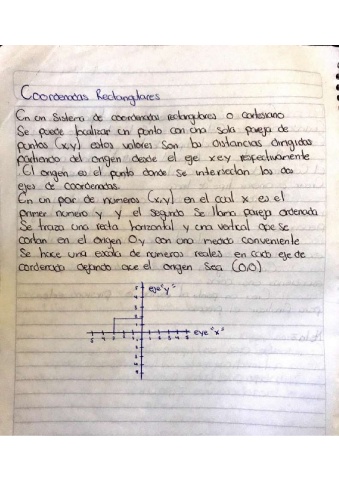 Coordenadas Rectanglares
En un Sistema de coordenadas rectangulares o cartesiano
Se puede localizar un punto con una sola pareja de
puntos (x,y) estos valores Son la distancias dirigidas
partiendo del origen desde el eje x e y respectivamente
El origen es el punto donde Se intersectan los dos
ejes de coordenadas.
En un par de numeros (x,y) en el cual x es el
primer numero y y el segundo Se llama pareja ordenada
Se traza una recta horizontal y una vertical que se
cortan en el origen O y con una medida conveniente
Se hace una escala de numeros reales en cada eje de
cordenada dejando que el origen Sea (0,0)
eje "y"
eye "x"